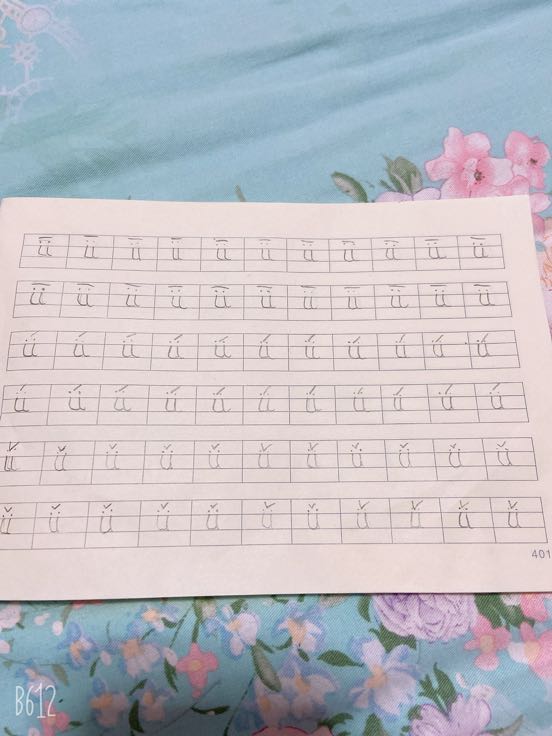 ǖ ǖ ǖ ǖ ǖ ǖ ǖ ǖ ǖ ǖ ǖ
ǖ ǖ ǖ ǖ ǖ ǖ ǖ ǖ ǖ ǖ ǖ
ǘ ǘ ǘ ǘ ǘ ǘ ǘ ǘ ǘ ǘ ǘ
ǘ ǘ ǘ ǘ ǘ ǘ ǘ ǘ ǘ ǘ ǘ
ǚ ǚ ǚ ǚ ǚ ǚ ǚ ǚ ǚ ǚ ǚ
ǚ ǚ ǚ ǚ ǚ ǚ ǚ ǚ ǚ ǚ ǚ
401
B612